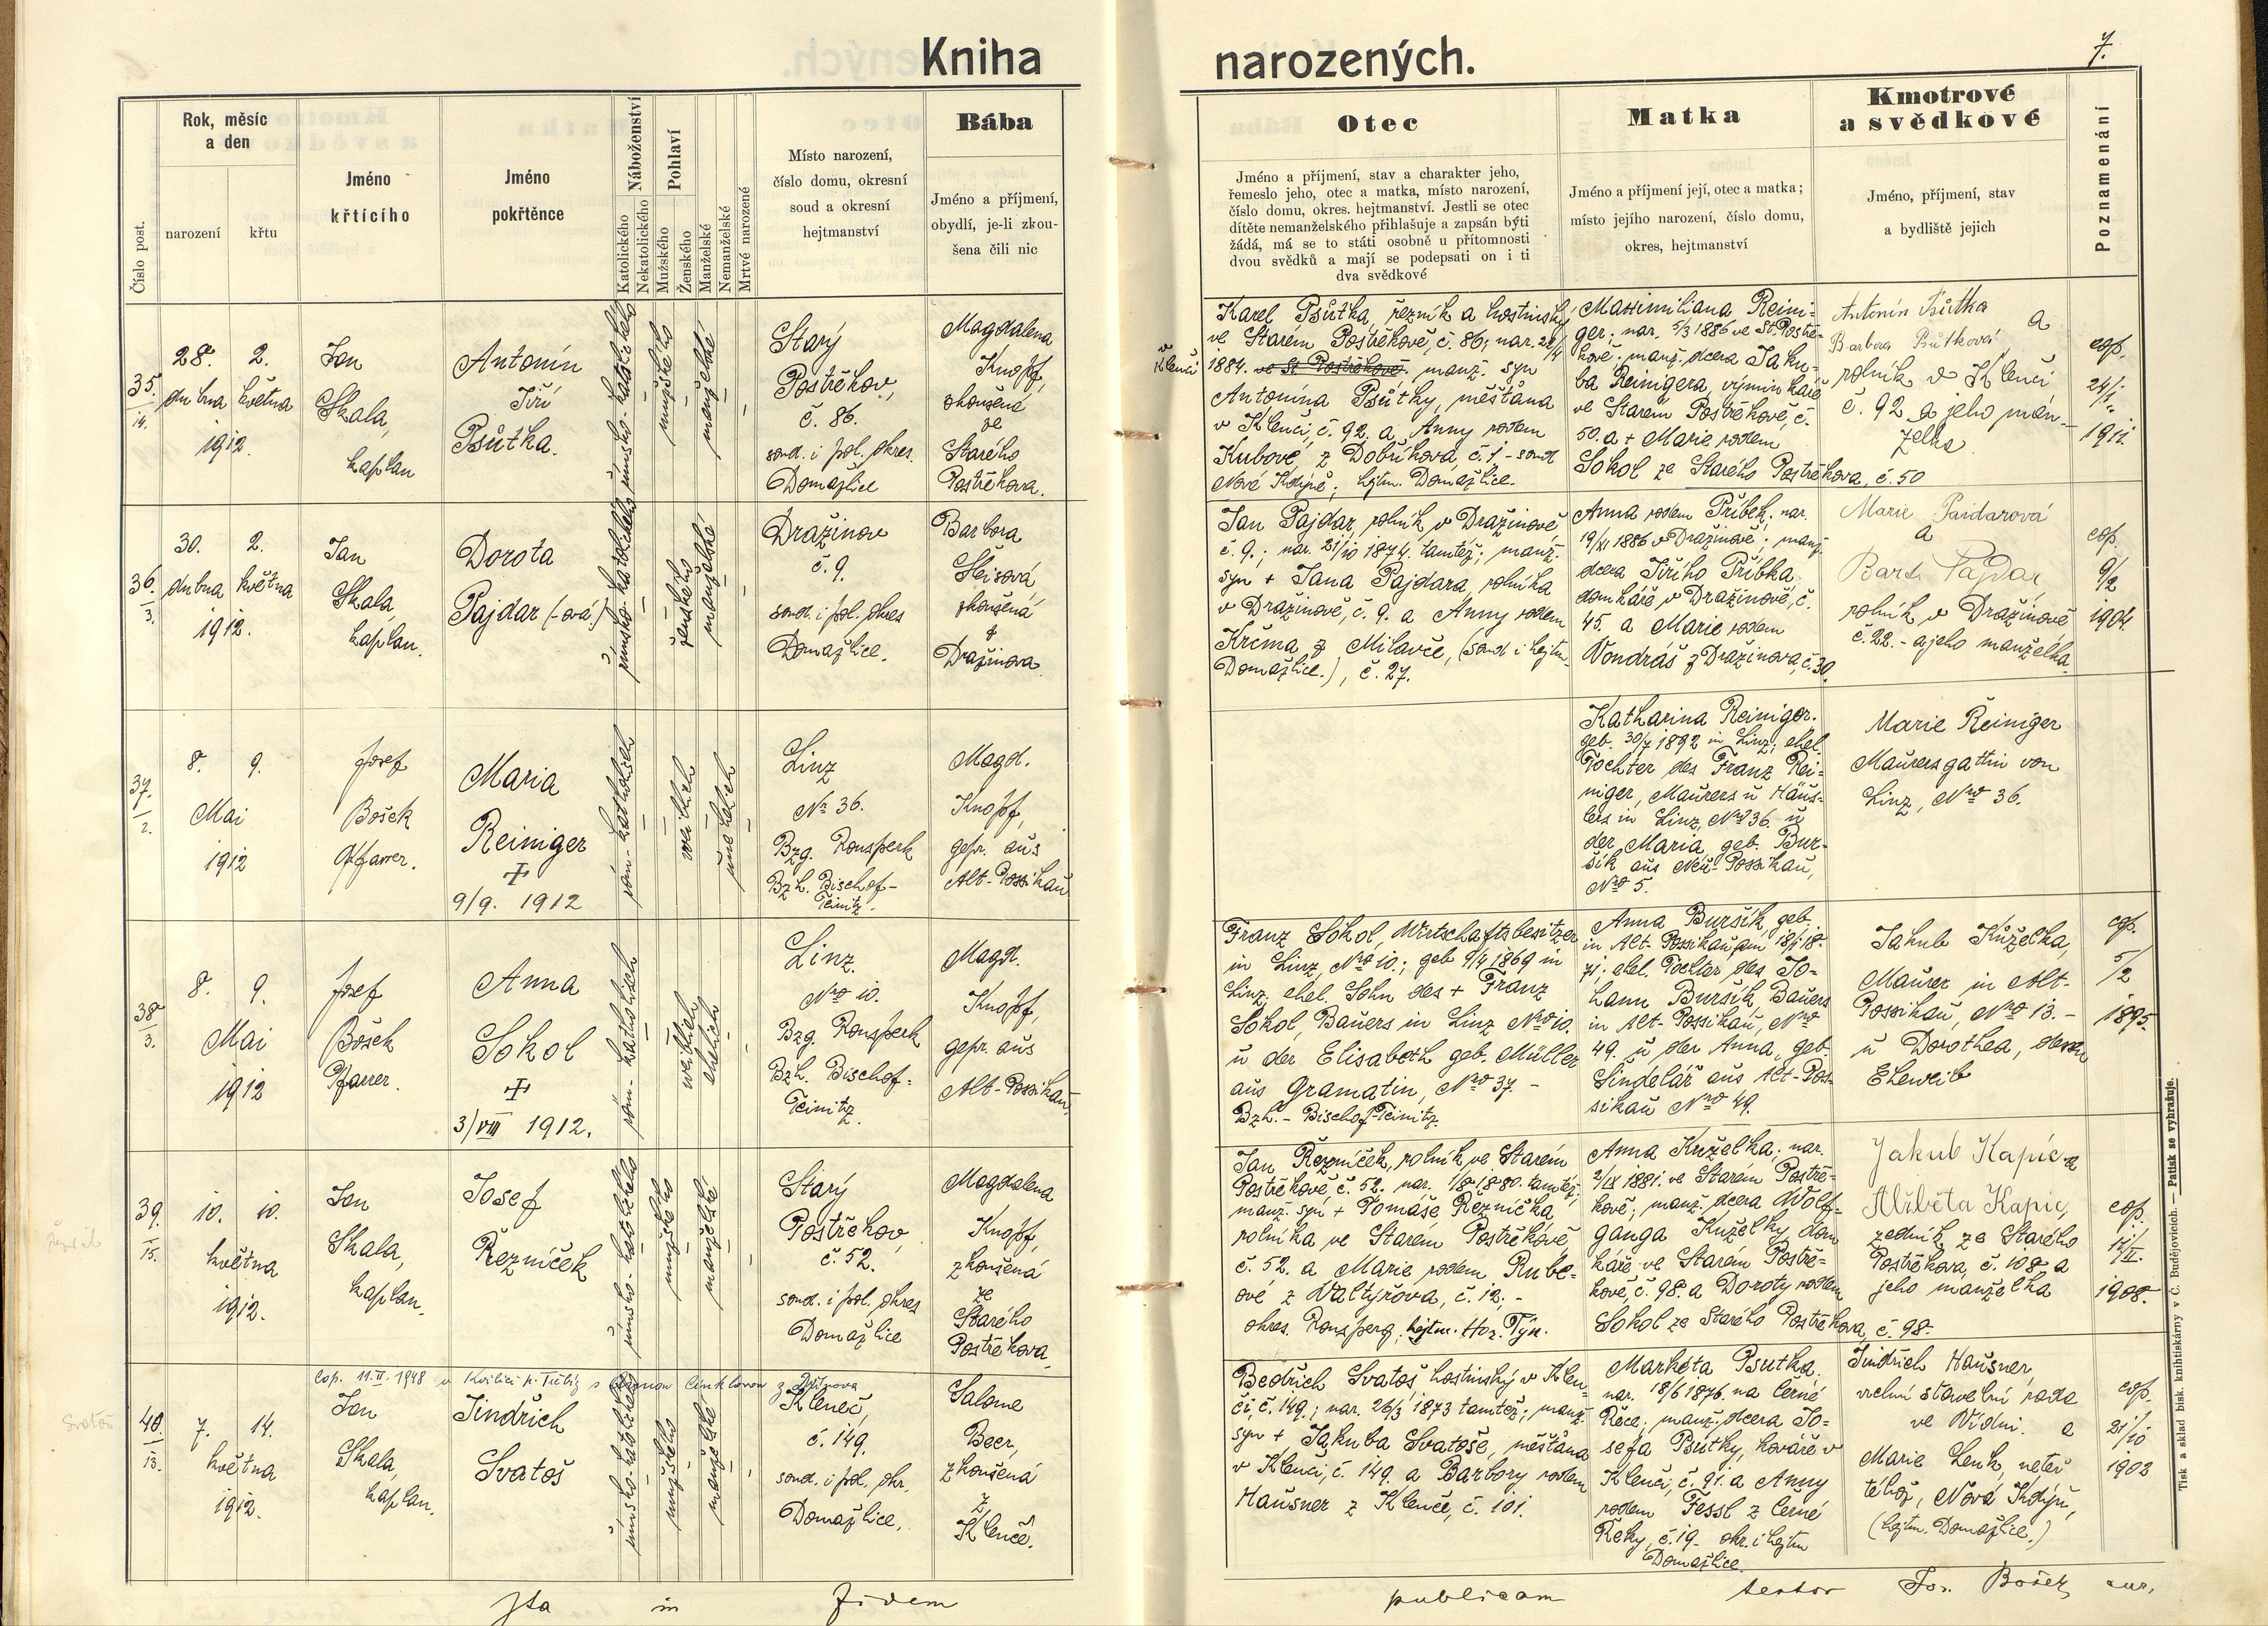 Kniha narozených.
7.
Rok, měsíc
a den
narození
křtu
Číslo post.
Jméno
křtícího
Jméno
pokřtěnce
Náboženství
Katolického
Nekatolického
Pohlaví
Mužského
Ženského
Manželské
Nemanželské
Mrtvé narozené
Místo narození,
číslo domu, okresní
soud a okresní
hejtmanství
Bába
Jméno a příjmení,
obydlí, je-li zkou-
šena čili nic
Otec
Jméno a příjmení, stav a charakter jeho,
řemeslo jeho, otec a matka, místo narození,
číslo domu, okres. hejtmanství. Jestli se otec
dítěte nemanželského přihlašuje a zapsán býti
žádá, má se to státi osobně u přítomnosti
dvou svědků a mají se podepsati on i ti
dva svědkové
Matka
Jméno a příjmení její, otec a matka;
místo jejího narození, číslo domu,
okres, hejtmanství
Kmotrové
a svědkové
Jméno, příjmení, stav
a bydliště jejich
Poznamenání
35.
14.
28. 2.
dubna května
1912.
Jan
Skala,
kaplan
Antonín
Jiří
Psůtka.
římsko-katolického
mužského
manželské
Starý
Postřekov,
č. 86.
soud. i pol. okres.
Domažlice
Magdalena
Knopf,
zkoušená
ve
Starého
Postřekova.
Karel Psůtka, řezník a hostinský
ve Starém Postřekově, č. 86; nar. 28/4
v Klenčí
1884. ve St. Postřekově. manž. syn
Antonína Psůtky, měšťana
v Klenčí, č. 92. a Anny rodem
Kubové z Dobříkova, č. 1 - soud
Nová Kdyně; hejtm. Domažlice.
Maximiliana Reini-
ger; nar. 5/3 1886 ve St. Postře-
kově. manž. dcera Jaku-
ba Reinigera, výminkáře
ve Starém Postřekově, č.
50. a + Marie rodem
Sokol ze Starého Postřekova, č. 50
Antonín Psůtka
a
Barbora Psůtková,
rolník v Klenčí
č. 92 a jeho man-
želka
cop.
24/1
1911.
36.
3.
30. 2.
dubna května
1912.
Jan
Skala,
kaplan.
Dorota
Pajdar (-ová.)
římsko-katolického
ženského
manželské
Dražinov
č. 9.
soud. i pol. okres
Domažlice.
Barbora
Šleisová
zkoušená
z
Dražinova.
Jan Pajdar, rolník v Dražinově,
č. 9.; nar. 21/10 1874. tamtéž; manž.
syn + Jana Pajdara, rolníka
v Dražinově, č. 9. a Anny rodem
Krčma z Milavče, (soud i hejtm.
Domažlice.), č. 27.
Anna rodem Příbek; nar.
19/XI 1886 v Dražinově; manž.
dcera Jiřího Příbka,
domkáře v Dražinově, č.
45. a Marie rodem
Vondráš z Dražinova, č. 30.
Marie Pajdarová
a
Bart. Pajdar,
rolník v Dražinově
č. 22. - a jeho manželka.
cop.
9/2
1904.
37.
2.
8. 9.
Mai
1912
Josef
Bošek
Pfarrer.
Maria
Reiniger
+
9/9. 1912
röm.-katholisch
weiblich
unehelich
Linz
Nr 36.
Bzg. Ronsperk
Bzh. Bischof-
Teinitz.
Magd.
Knopf,
gepr. aus
Alt-Possikau
Katharina Reiniger.
geb. 30/7 1892 in Linz; ehel.
Tochter des Franz Rei-
niger, Maurers u Häus-
lers in Linz, Nro 36. u
der Maria geb. Bur-
šik aus Neu-Possikau,
Nro 5.
Marie Reiniger
Maurersgattin von
Linz, Nro 36.
38.
3.
8. 9.
Mai
1912
Josef
Bošek
Pfarrer.
Anna
Sokol
+
3/VIII 1912.
röm.-katholisch
weiblich
ehelich
Linz.
Nro 10.
Bzg. Ronsperk
Bzh. Bischof-
Teinitz.
Magd.
Knopf,
gepr. aus
Alt-Possikau
Franz Sokol, Wirtschaftsbesitzer
in Linz, Nro 10.; geb 9/4 1869 in
Linz, ehel. Sohn des + Franz
Sokol, Bauers in Linz Nro 10.
u der Elisabeth geb. Müller
aus Gramatin, Nro 37. -
Bzh. - Bischof-Teinitz.
Anna Buršík, geb.
in Alt-Possikau, am 18/1 18-
71; ehel. Tochter des Jo-
hann Buršík, Bauers
in Alt-Possikau, Nro
49. u der Anna, geb.
Šindelář aus Alt-Pos-
sikau Nro 49.
Jakub Kůželka,
Maurer in Alt-
Possikau, Nro 13. -
u Dorothea, dessen
Eheweib
cop.
5/2
1895.
39.
15.
10. 10.
května
1912.
Jan
Skala,
kaplan.
Josef
Řezníček
římsko-katolického
mužského
manželské
Starý
Postřekov
č. 52.
soud. i pol. okres
Domažlice
Magdalena
Knopf,
zkoušená
ze
Starého
Postřekova
Jan Řezníček, rolník ve Starém
Postřekově, č. 52. nar. 1/8 1880. tamtéž,
manž. syn + Tomáše Řezníčka
rolníka ve Starém Postřekově
č. 52. a Marie rodem Rube-
ové z Valtýřova, č. 12. -
okres. Ronsperg, hejtm. Hor. Týn.
Anna Kuželka; nar.
2/IX 1881. ve Starém Postře-
kově; manž. dcera Wolf-
ganga Kuželky, dom
káře ve Starém Postře-
kově, č. 98. a Doroty rodem
Sokol ze Starého Postřekova, č. 98.
Jakub Kapic a
Alžběta Kapic,
zedník ze Starého
Postřekova, č. 108 a
jeho manželka
cop.
11/II.
1908.
40.
13.
Svatoš
cop. 11.II.1948 v Kvílici
7. 14.
května
1912.
Jan
Skala,
kaplan.
Jindřich
Svatoš
římsko-katolického
mužského
manželské
Kleneč,
č. 149.
soud. i pol. okr.
Domažlice.
Salome
Beer,
zkoušená
z
Klenče.
Bedřich Svatoš hostinský v Klen-
čí, č. 149.; nar. 26/3 1873 tamtéž; manž.
syn + Jakuba Svatoše, měšťana
v Klenčí, č. 149. a Barbory rodem
Hausner z Klenče, č. 101.
Markéta Psutka,
nar. 18/6 1876. na Černé
Řece; manž. dcera Jo-
sefa Psutky, kováře v
Klenčí, č. 91. a Anny
rodem Fessl z Černé
Řeky, č. 19. okr. i hejtm
Domažlice.
Jindřich Hausner,
vrchní stavební rada
ve Vídni. a
Marie Lenk, neteř
téhož, Nová Kdyň,
(hejtm. Domažlice.)
cop.
21/10
1903
Ita in fidem publicam testor Jos. Bošek, cur.
Tisk a sklad bisk. knihtiskárny v Č. Budějovicích. — Patisk se vyhražuje.